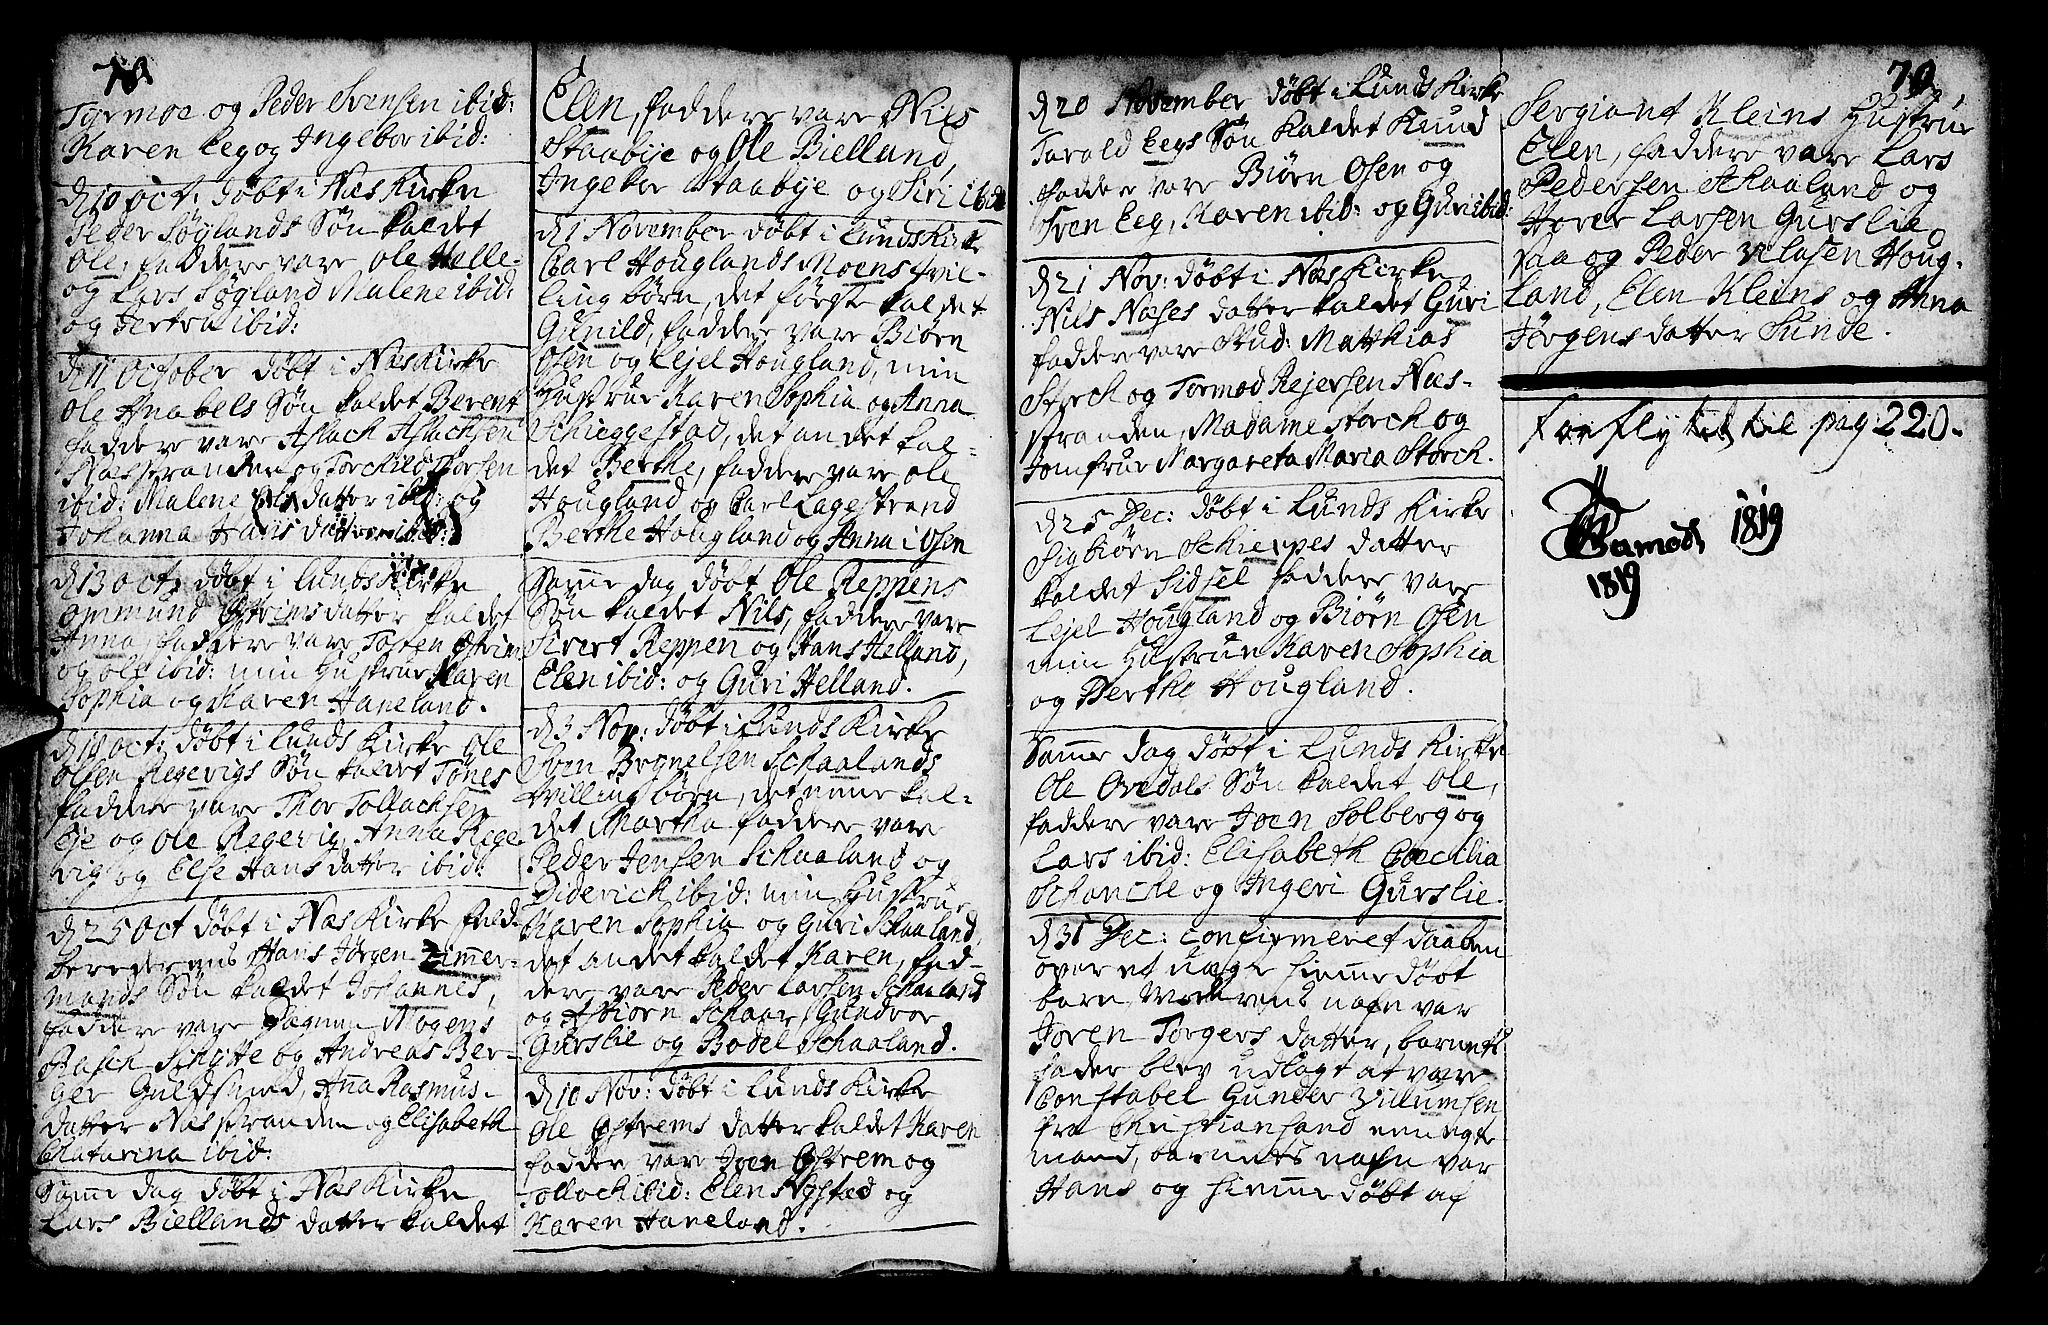 70
Tormoe og Peder Svensen ibid:
Karen Eeg og Ingebor ibid:
d 10 oct: døbt i Næs Kirke
Peder Søglands Søn kaldet
Ole, faddere vare Ole Helle-
og Lars Søgland Malene ibid:
og Jertru ibid:
d 11 October døbt i Næs Kirke
Ole Anabels Søn kaldet Berent
faddere vare Aslach Aslachsen
Næsstranden og Torchild Thorsen
ibid: Malene datter ibid: og
Johanna Hans datter ibid:
d 13 Oct: døbt i Lunds Kirke
Ommund Østrims datter kaldet
Anna, faddere vare Tosten Østrim
og Ole ibid: min Hustrue Karen
Sophia og Karen Haneland.
d 19 oct: døbt i Lunds Kirke Ole
Olsen Regevigs Søn kaldet Tønes
faddere vare Thor Tollachsen
Eje og Ole Regevig, Anna Rege
vig og Else Hans datter ibid:
d 25 Oct døbt i Næs Kirke fuld-
Hans Jørgen Zimmer-
mands Søn kaldet Johannes,
faddere vare Mogens
Basch Schytte og Andreas Ber-
ger Guldsmed, Anna Rasmus-
datter Næsstranden og Elisabeth
Chatarina ibid:
Samme dag døbt i Næs Kirke
Lars Biellands datter kaldet
Elen, faddere vare Nils
Staabye og Ole Bielland,
Ingebor Staabye og Siri ibid
d 1 November døbt i Lunds Kirke
Carl Houglands Moens tvil-
ling børn, det første kaldet
Gunild, faddere vare Biørn
Osen og Lejel Hougland, min
Hustrue Karen Sophia og Anna
Schieggestad, det andet kal-
det Berthe, faddere vare Ole
Hougland og Carl Lagestrand
Berthe Hougland og Anna i Osen
Samme dag døbt Ole Reppens
Søn kaldet Nils, faddere vare
Sivert Reppen og Hans Helland,
Elen ibid: og Guri Helland.
d 3 Nov: døbt i Lunds Kirke
Sven Bronelsen Schaalands
tvilling børn, det eene kal-
det Martha, faddere vare
Peder Jensen Schaaland og
Diderich ibid: min Hustrue
Karen Sophia og Guri Schaaland,
det andet kaldet Karen, fad-
dere vare Peder Larsen Schaaland
og Asbiørn Schaar, Gundvor
Gurslie og Bodel Schaaland.
d 10 Nov: døbt i Lunds Kirke
Ole Østrems datter kaldet Karen
faddere vare Joen Østrem og
Tollach ibid: Elen Nysted og
Karen Haneland.
d 20 November døbt i Lunds Kirke
Tarald Eegs Søn kaldet Knud
faddere vare Biørn Osen og
Sven Eeg, Karen ibid: og Guri ibid:
d 21 Nov: døbt i Næs Kirke
Nils Næses datter kaldet Guri
faddere vare Stud: Matthias
Storch og Tormod Rejersen Næs-
stranden, Madame Storch og
Jomfrue Margareta Maria Storch.
d 25 Dec: døbt i Lunds Kirke
Sigbiørn Schieppes datter
kaldet Sidsel faddere vare
Lejel Hougland og Biørn Osen
min Hustrue Karen Sophia
og Berthe Hougland.
Samme dag døbt i Lunds Kirke
Ole Ovedals Søn kaldet Ole,
faddere vare Joen Solberg og
Lars ibid: Elisabeth Cæcilia
Schanche og Ingeri Gurslie.
d 31 Dec: Confirmeret daaben
over et uægte hiemme døbt
barn, Moderens nafn var
Joren Torgers datter, barnets
fader blev udlagt at være
Constabel Gunder Villumsen
fra Christiansand en ungt
mand, barnets nafn var
Hans og hiemme døbt af
70
Sergiant Kleins Hustrue
Elen, faddere vare Lars
Pedersen Schaaland og
Haver Larsen Gurslie,
Paa og Peder Olasen Houg-
land, Elen Kleins og Anna
Jørgens datter Sunde.
forflyttet til pag: 220.
Gamod, 1819
1819